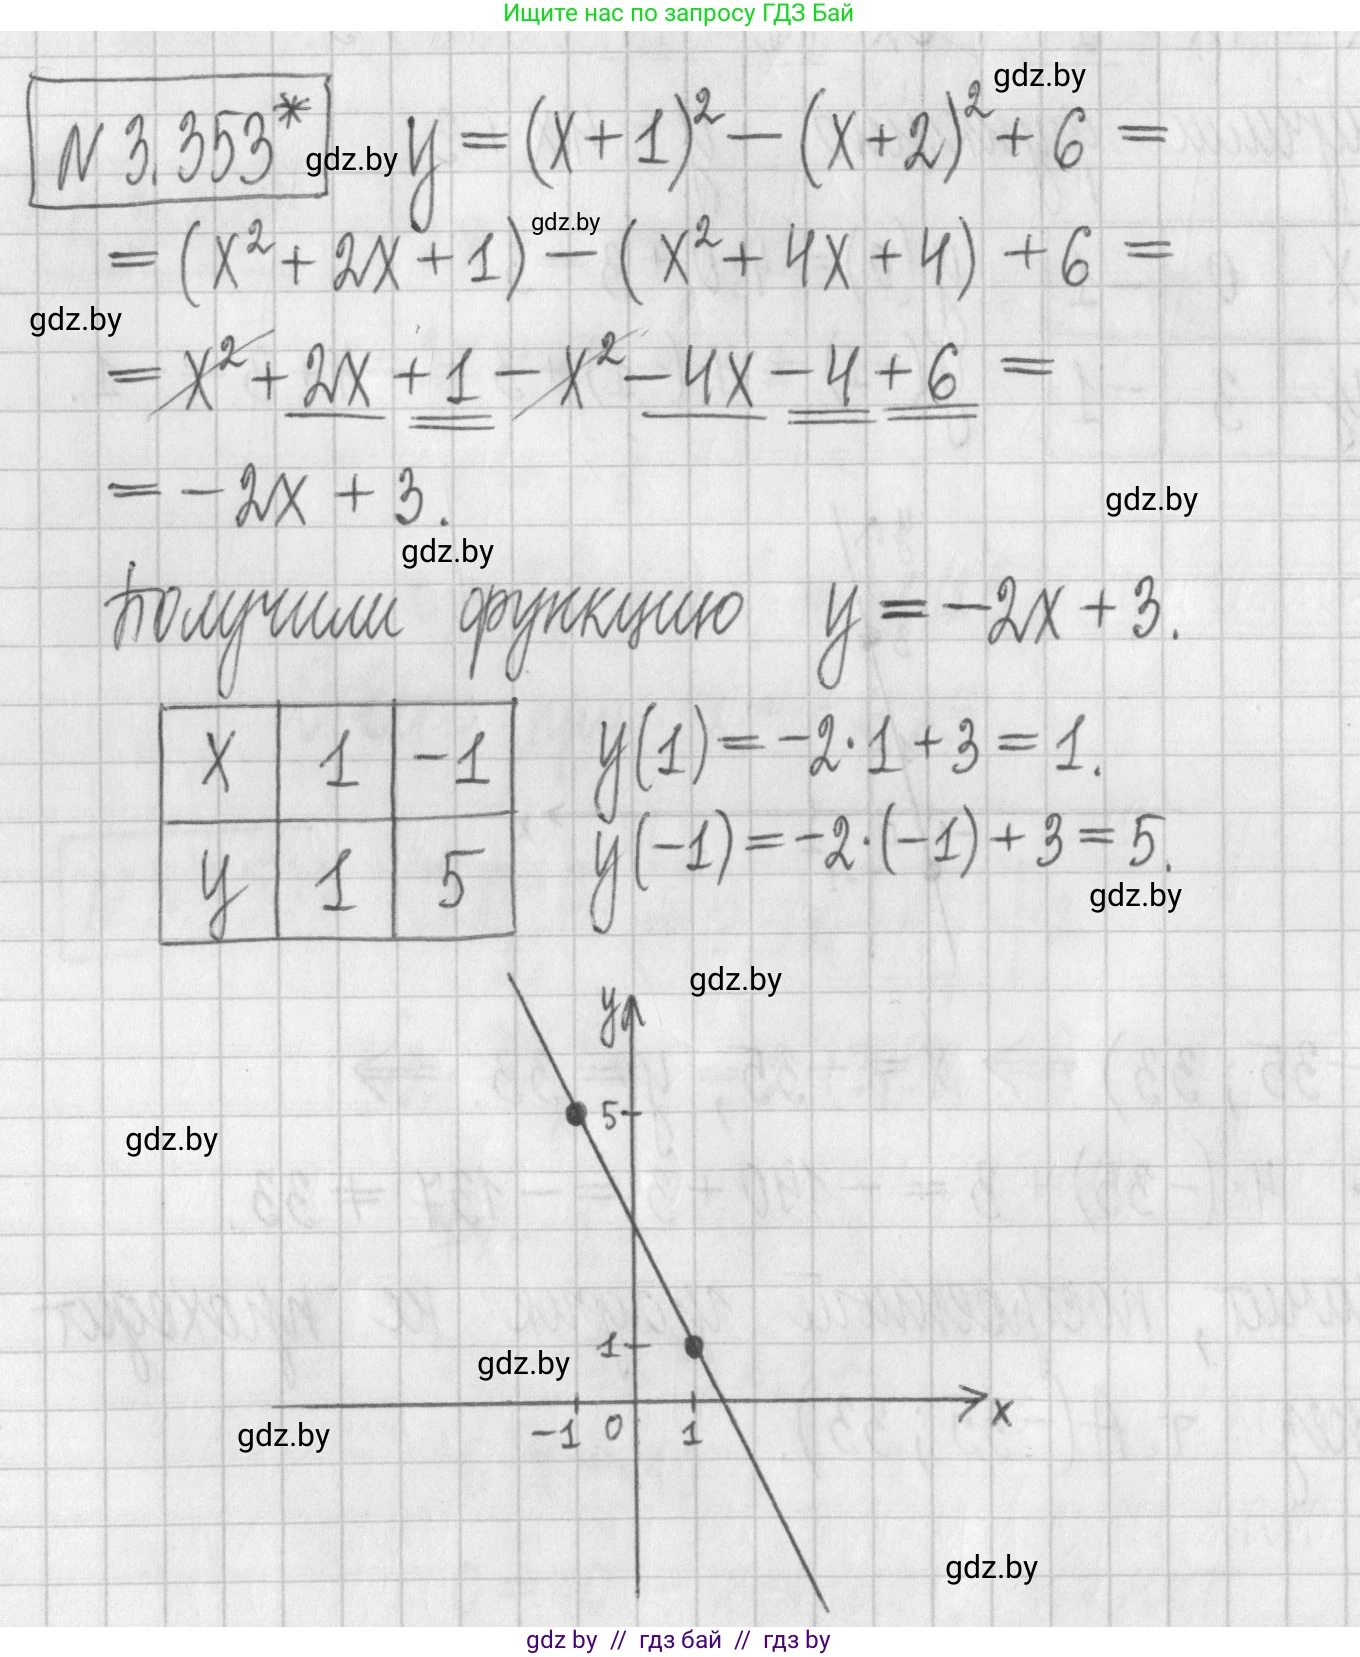 Ищите нас по запросу ГДЗ Бай
gdz.by
N 3.353* gdz.by y = (x+1)² − (x+2)² + 6 =
gdz.by
= (x² + 2x + 1) − (x² + 4x + 4) + 6 =
gdz.by
= x² + 2x + 1 − x² − 4x − 4 + 6 =
= −2x + 3.
gdz.by
gdz.by
Получили функцию y = −2x + 3.
x 1 −1
y 1 5
y(1) = −2·1 + 3 = 1.
y(−1) = −2·(−1) + 3 = 5.
gdz.by
gdz.by
y
5
gdz.by
1
gdz.by
−1 0 1 x
gdz.by
gdz.by
gdz by // гдз бай // гдз by